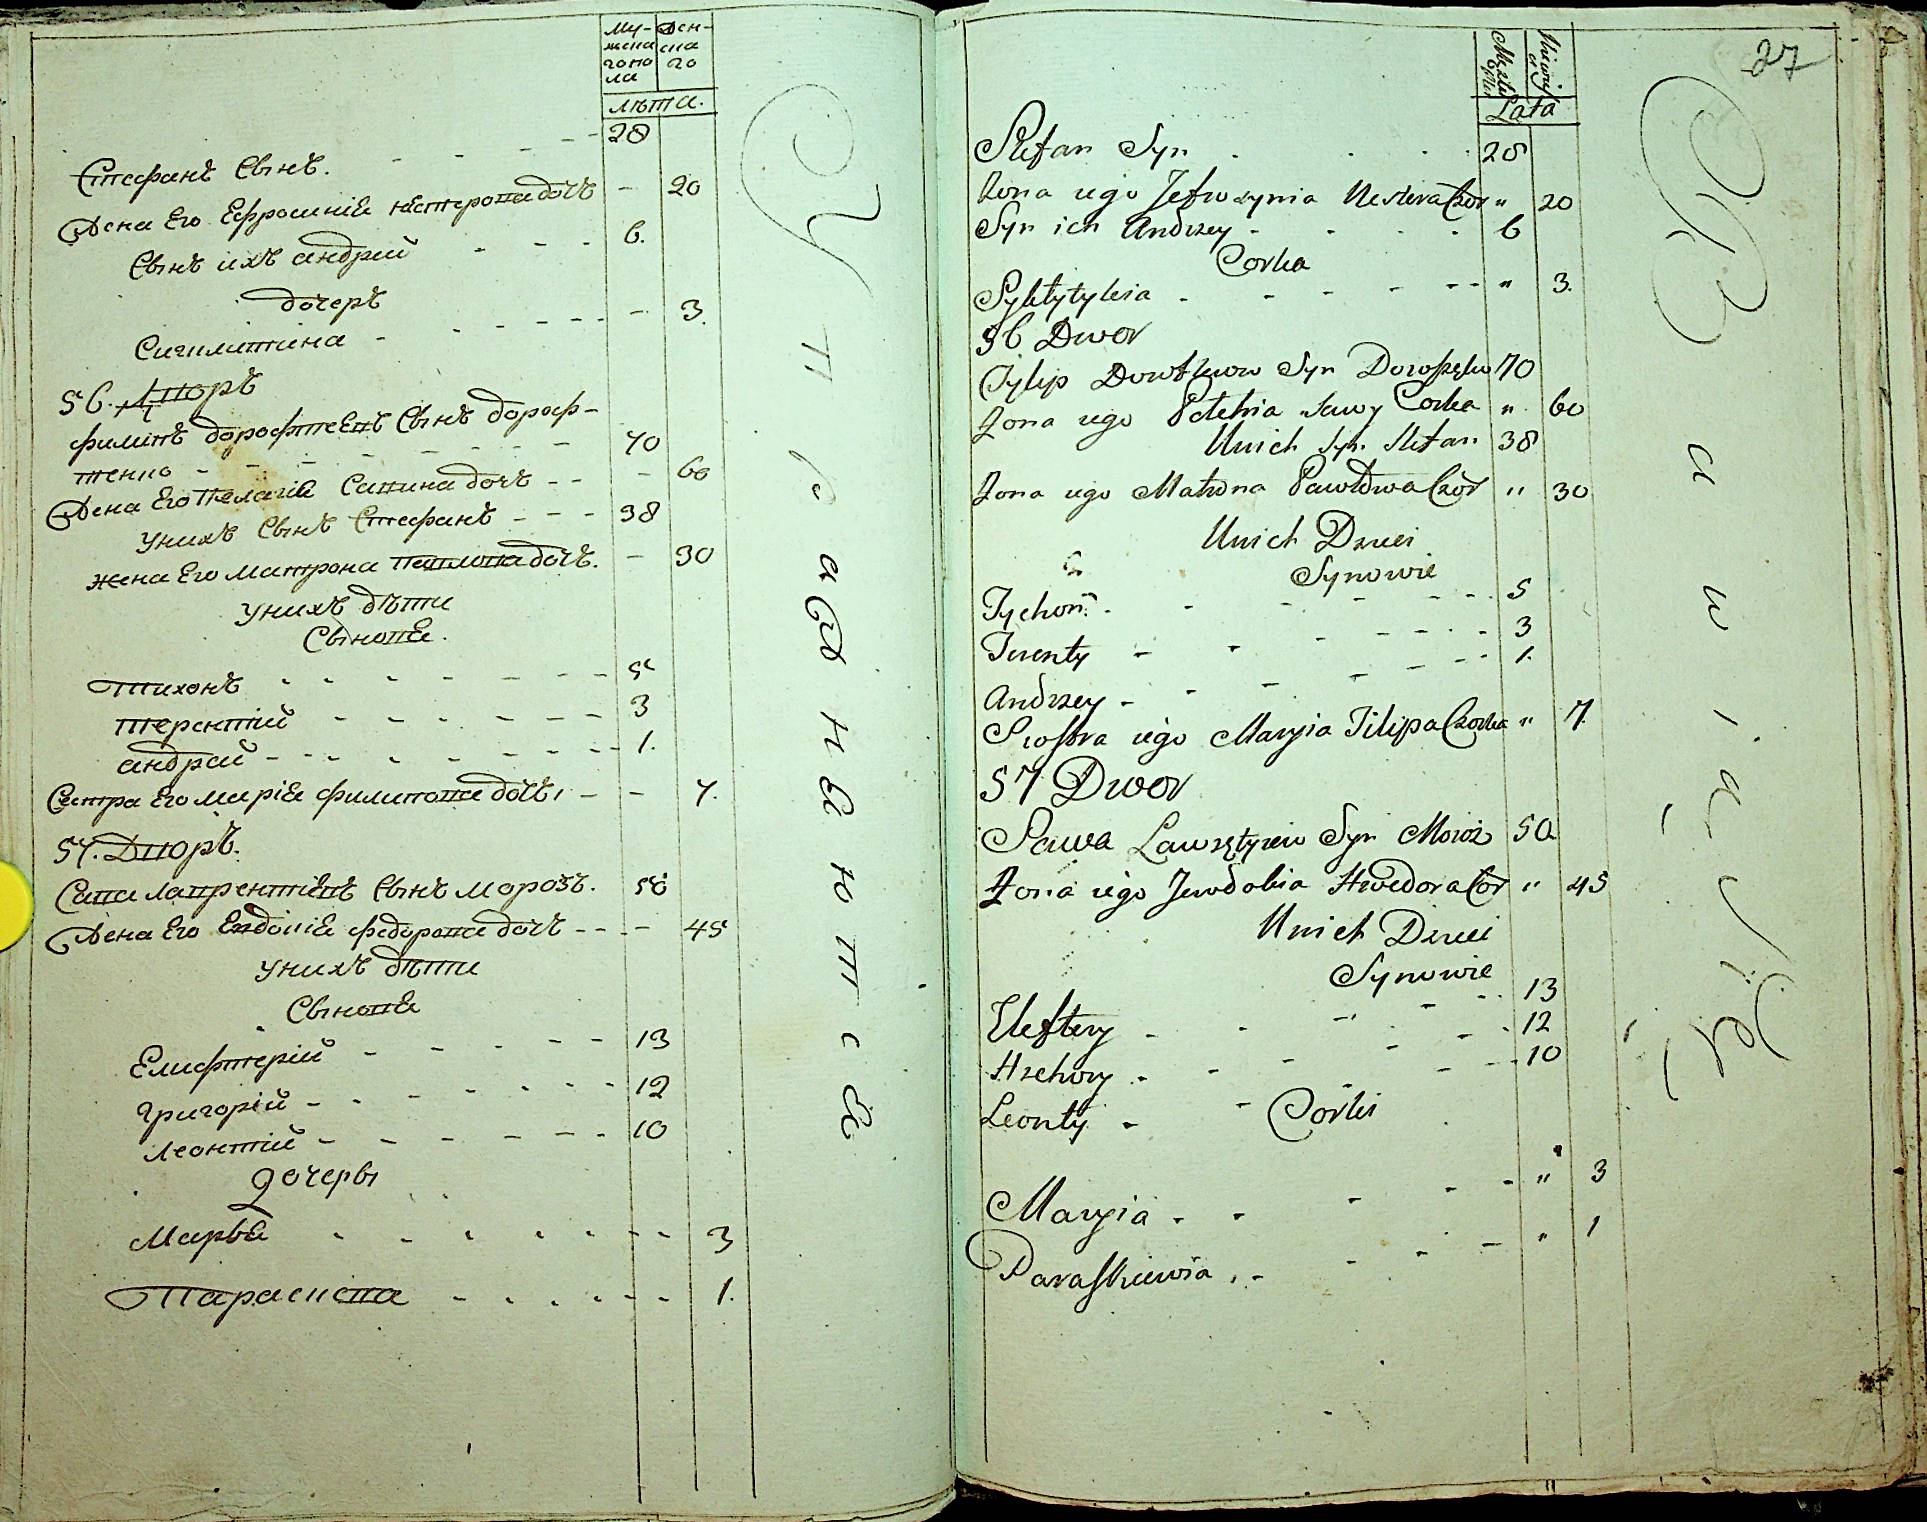 Мужена гопола
Женска го
лѣта.
Стефанъ Сынъ. 28
Жена Его Ефросиніѣ Нестерова дочь - 20
Сынъ ихъ андрій 6.
дочеръ
Сигклитина - 3.
56. Дворъ
филипъ дорофтеевъ Сынъ дороф-
тенко 70
Жена Его Пелагіѣ Савина дочь - 60
Унихъ Сынъ Стефанъ 38
жена Его Матрона Павлова дочь. - 30
Унихъ дѣти
Сынове.
Тихонъ 5
Терентій 3
андрѣй 1.
Сестра Его Маріѣ филипова дочь - 7.
57. Дворъ.
Сава лаврентіевъ Сынъ морозъ. 50
Жена Его Евдокіѣ федорова дочь - 45
Унихъ дѣти
Сынове
Елифтерій 13
Григорій 12
леонтій 10
дочеры
Марья 3
Параскева 1.
Управнѣются
27
Męzki
Lata
Stefan Syn 28
Żona iego Jefrozynia Nestera Cor " 20
Syn ich Andrzey 6
Corka
Synklytykia " 3.
56 Dwor
Fylip Dorofteiow Syn Doroszęko 70
Żona iego Pelehia Sawy Corka " 60
Unich Syn Stefan 38
Żona iego Matrona Pawłowa Cor " 30
Unich Dzieci
Synowie
Tychon 5
Terenty 3
Andrzey 1.
Siostra iego Maryia Filipa Czorka " 7.
57 Dwor
Sawa Lawrętyiew Syn Moroz 50
Żona iego Jewdokia Hwedora Cor " 45
Unich Dzieci
Synowie
Eleftery 13
Hrehory 12
Leonty 10
Corki
Maryia " 3
Paraskiewia " 1